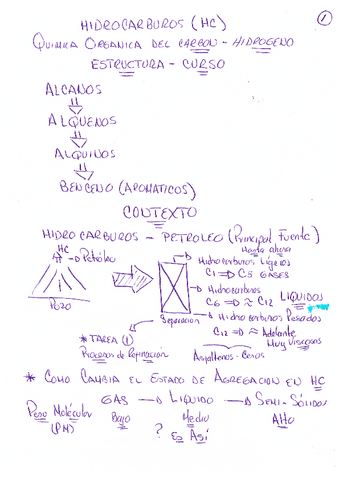 1
HIDROCARBUROS (HC)
QUIMICA ORGANICA DEL CARBON - HIDROGENO
ESTRUCTURA - CURSO
ALCANOS
ALQUENOS
ALQUINOS
BENCENO (AROMATICOS)
CONTEXTO
HIDROCARBUROS - PETROLEO (Principal Fuente)
Hasta ahora
HC
Petróleo
Hidrocarburos Ligeros
C1 => C5 GASES
Hidrocarburos
C6 => ≈ C12 LIQUIDOS
Pozo
Separacion
Hidrocarburos Pesados
C12 => ≈ Adelante
Muy viscosos
* TAREA (1)
Procesos de Refinación
Asfaltenos - Ceras
* COMO CAMBIA EL ESTADO DE AGREGACION EN HC
GAS → LIQUIDO → SEMI-SÓLIDOS
Peso Molécular Bajo Medio Alto
(PM) ? Es Así